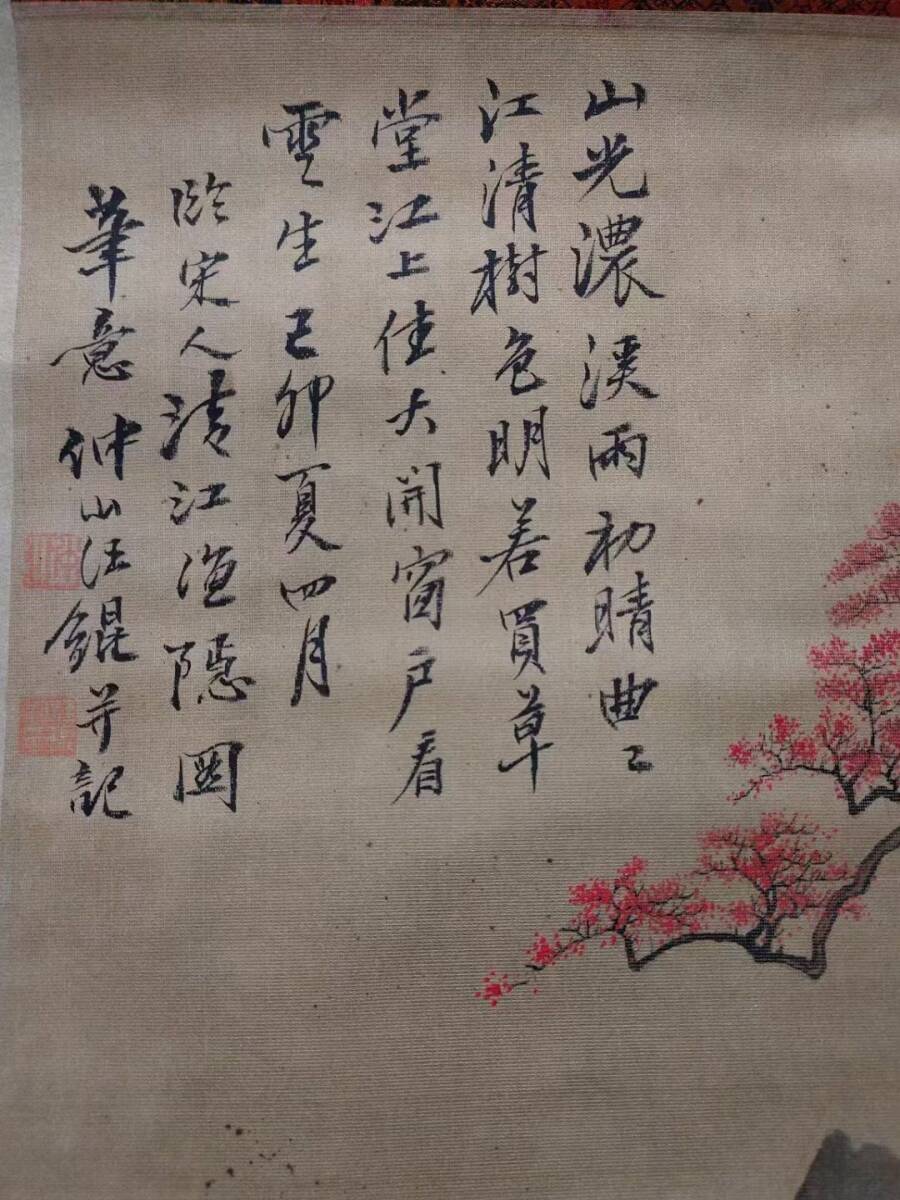 山光濃淡雨初晴曲〻
江清樹色明若買草
堂江上住大開窗户看
雲生己卯夏四月
臨宋人清江漁隱圖
筆意仲山汪錕并記